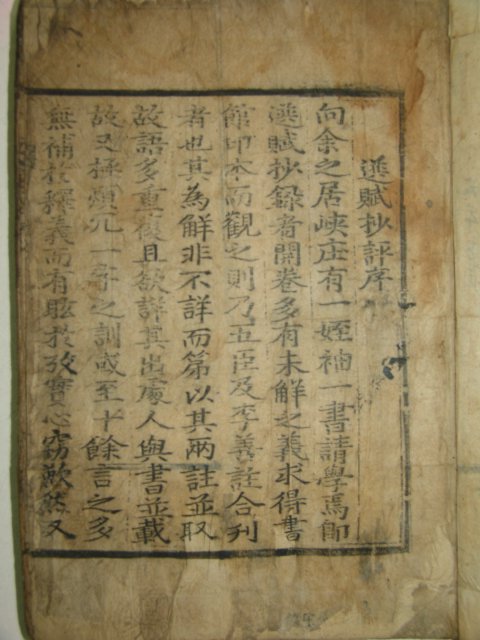 選賦抄評序
向余之居峽庄有一姪袖一書請學焉卽
選賦抄錄者開卷多有未解之義求得書
館印本而觀之則乃五臣及李善註合刊
者也其爲解非不詳而第以其兩註並取
故語多重復且欲詳其出處人與書並載
故又極煩冗一字之訓或至十餘言之多
無補於釋義而有眩於攷實心竊歉然又